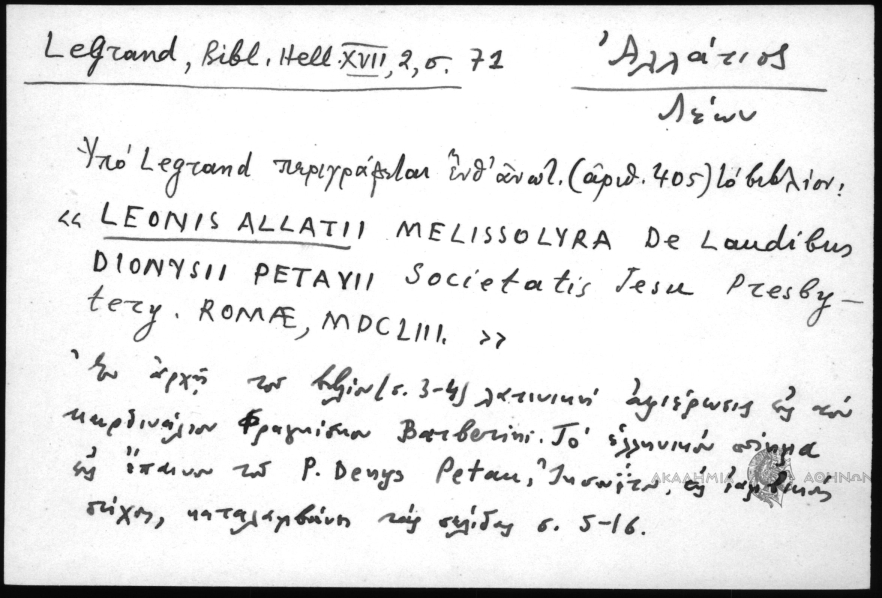 Legrand, Bibl. Hell. XVII, 2, σ. 71
Ἀλλάτιος
Λέων
Ὑπό Legrand περιγράφεται ἐνθ' ἀνωτ. (ἀριθ. 405) τό βιβλίον:
« LEONIS ALLATII MELISSOLYRA De Laudibus
DIONYSII PETAVII Societatis Jesu Presby-
tery. ROMÆ, MDCLIII. »
Ἐν ἀρχῇ τοῦ βιβλίου (σ. 3-4) λατινική ἀφιέρωσις εἰς τόν
καρδινάλιον Φραγκίσκον Barberini. Τό ἑλληνικόν ποίημα
εἰς ἔπαινον τοῦ P. Denys Petau, Ἰησουΐτου, εἰς ἰαμβικούς
στίχους, καταλαμβάνει τάς σελίδας σ. 5-16.
ΑΚΑΔΗΜΙΑ ΑΘΗΝΩΝ